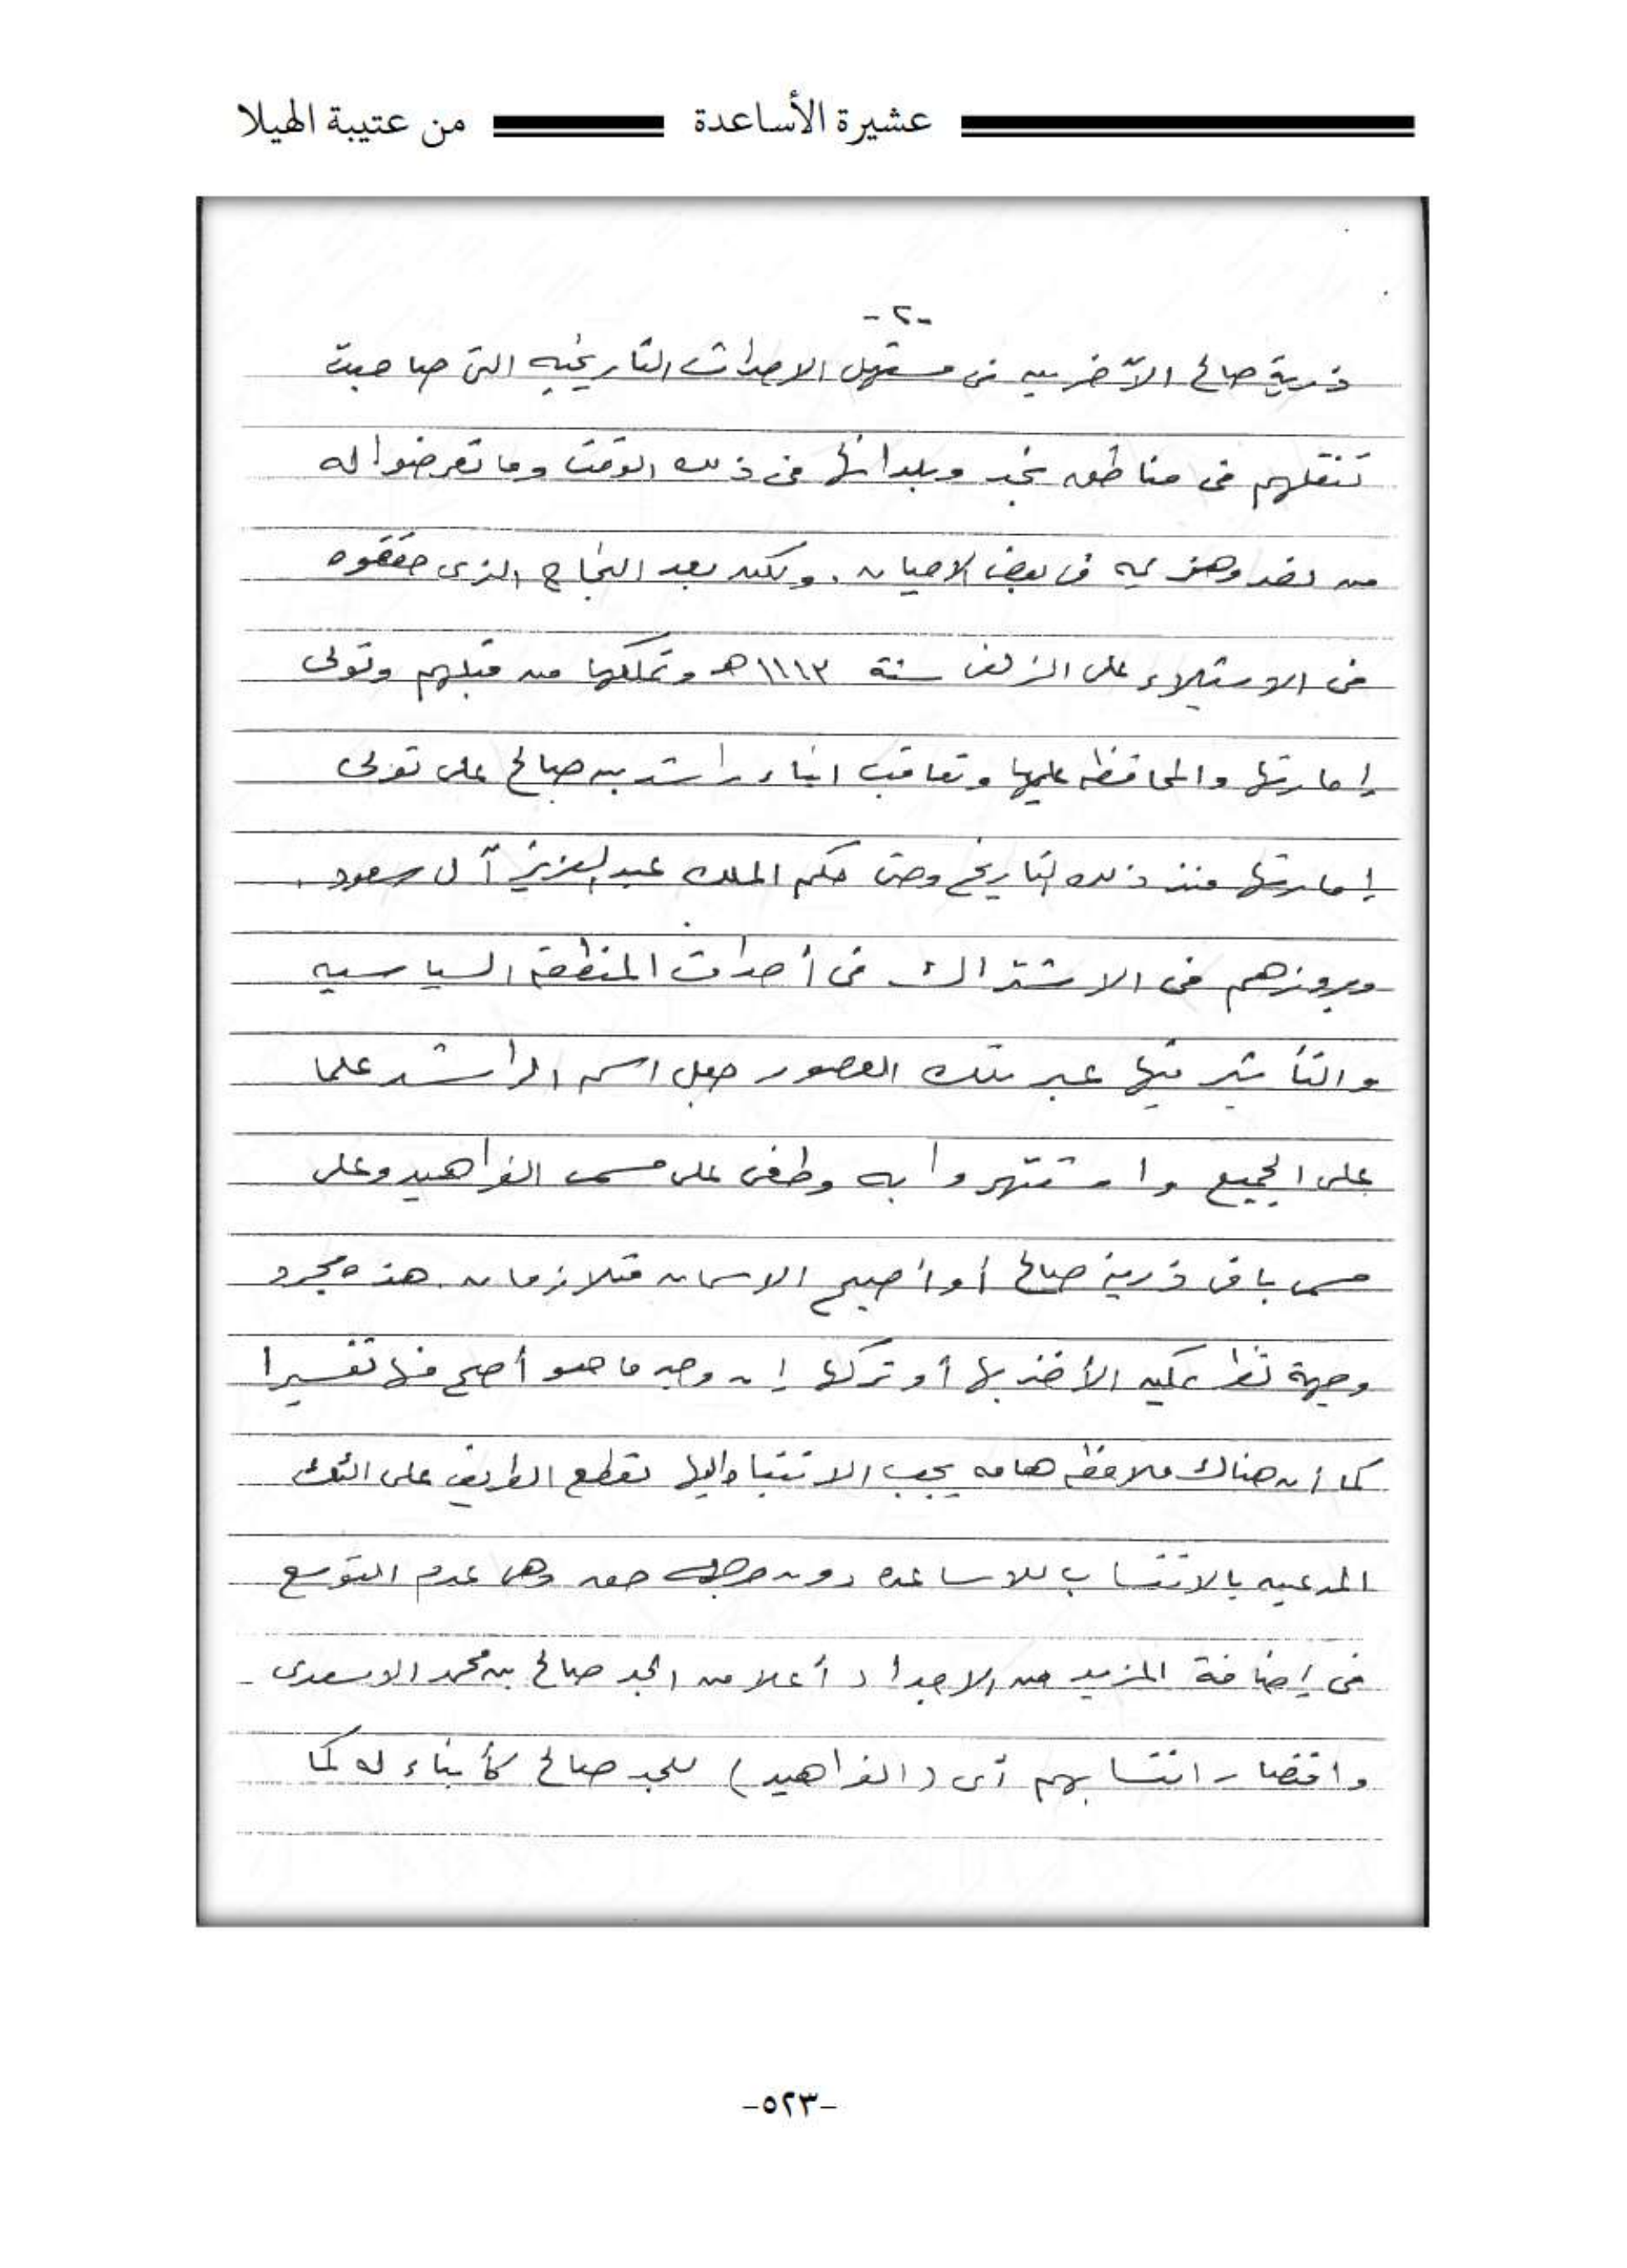 عشيرة الأساعدة من عتيبة الهيلا
-٢-
ذرية صالح الآخرين في مستهل الاحداث التاريخيه التى صاحبت
تنقلهم فى مناطق نجد وبلدانها فى ذلك الوقت وما تعرضوا له
من نصر وهزيمه فى بعض الاحيان. ولكن بعد النجاح الذى حققوه
فى الاستيلاء على الزلفى سنة ١١١٣هـ وتملكها من قبلهم وتولى
إمارتها والمحافظه عليها وتعاقب ابناء راشد بن صالح على تولى
إمارتها منذ ذلك التاريخ وحتى حكم الملك عبدالعزيز آل سعود.
وبروزهم فى الاشتراك فى أحداث المنطقة السياسيه
والتأثير فيها عبر تلك العصور جعل اسم الراشد علما
على الجميع واشتهروا به وطغى على مسمى الفراهيد وعلى
مسمى باقى ذرية صالح أو أصبح الاسمان متلازمان. هذه مجرد
وجهة نظر يمكن الأخذ بها أو تركها إن وجد ما هو أصح منها تفسيرا
كما أن هناك ملاحظه هامه يجب الانتباه إليها لقطع الطريق على
المدعين بالانتساب للاساعده دون وجه حق وهى عدم التوسع
فى إضافة المزيد من الاجداد أعلا من الجد صالح بن محمد الاسعدى
واقتصار انتسابهم أى (الفراهيد) للجد صالح كأبناء له كما
-٥٢٣-